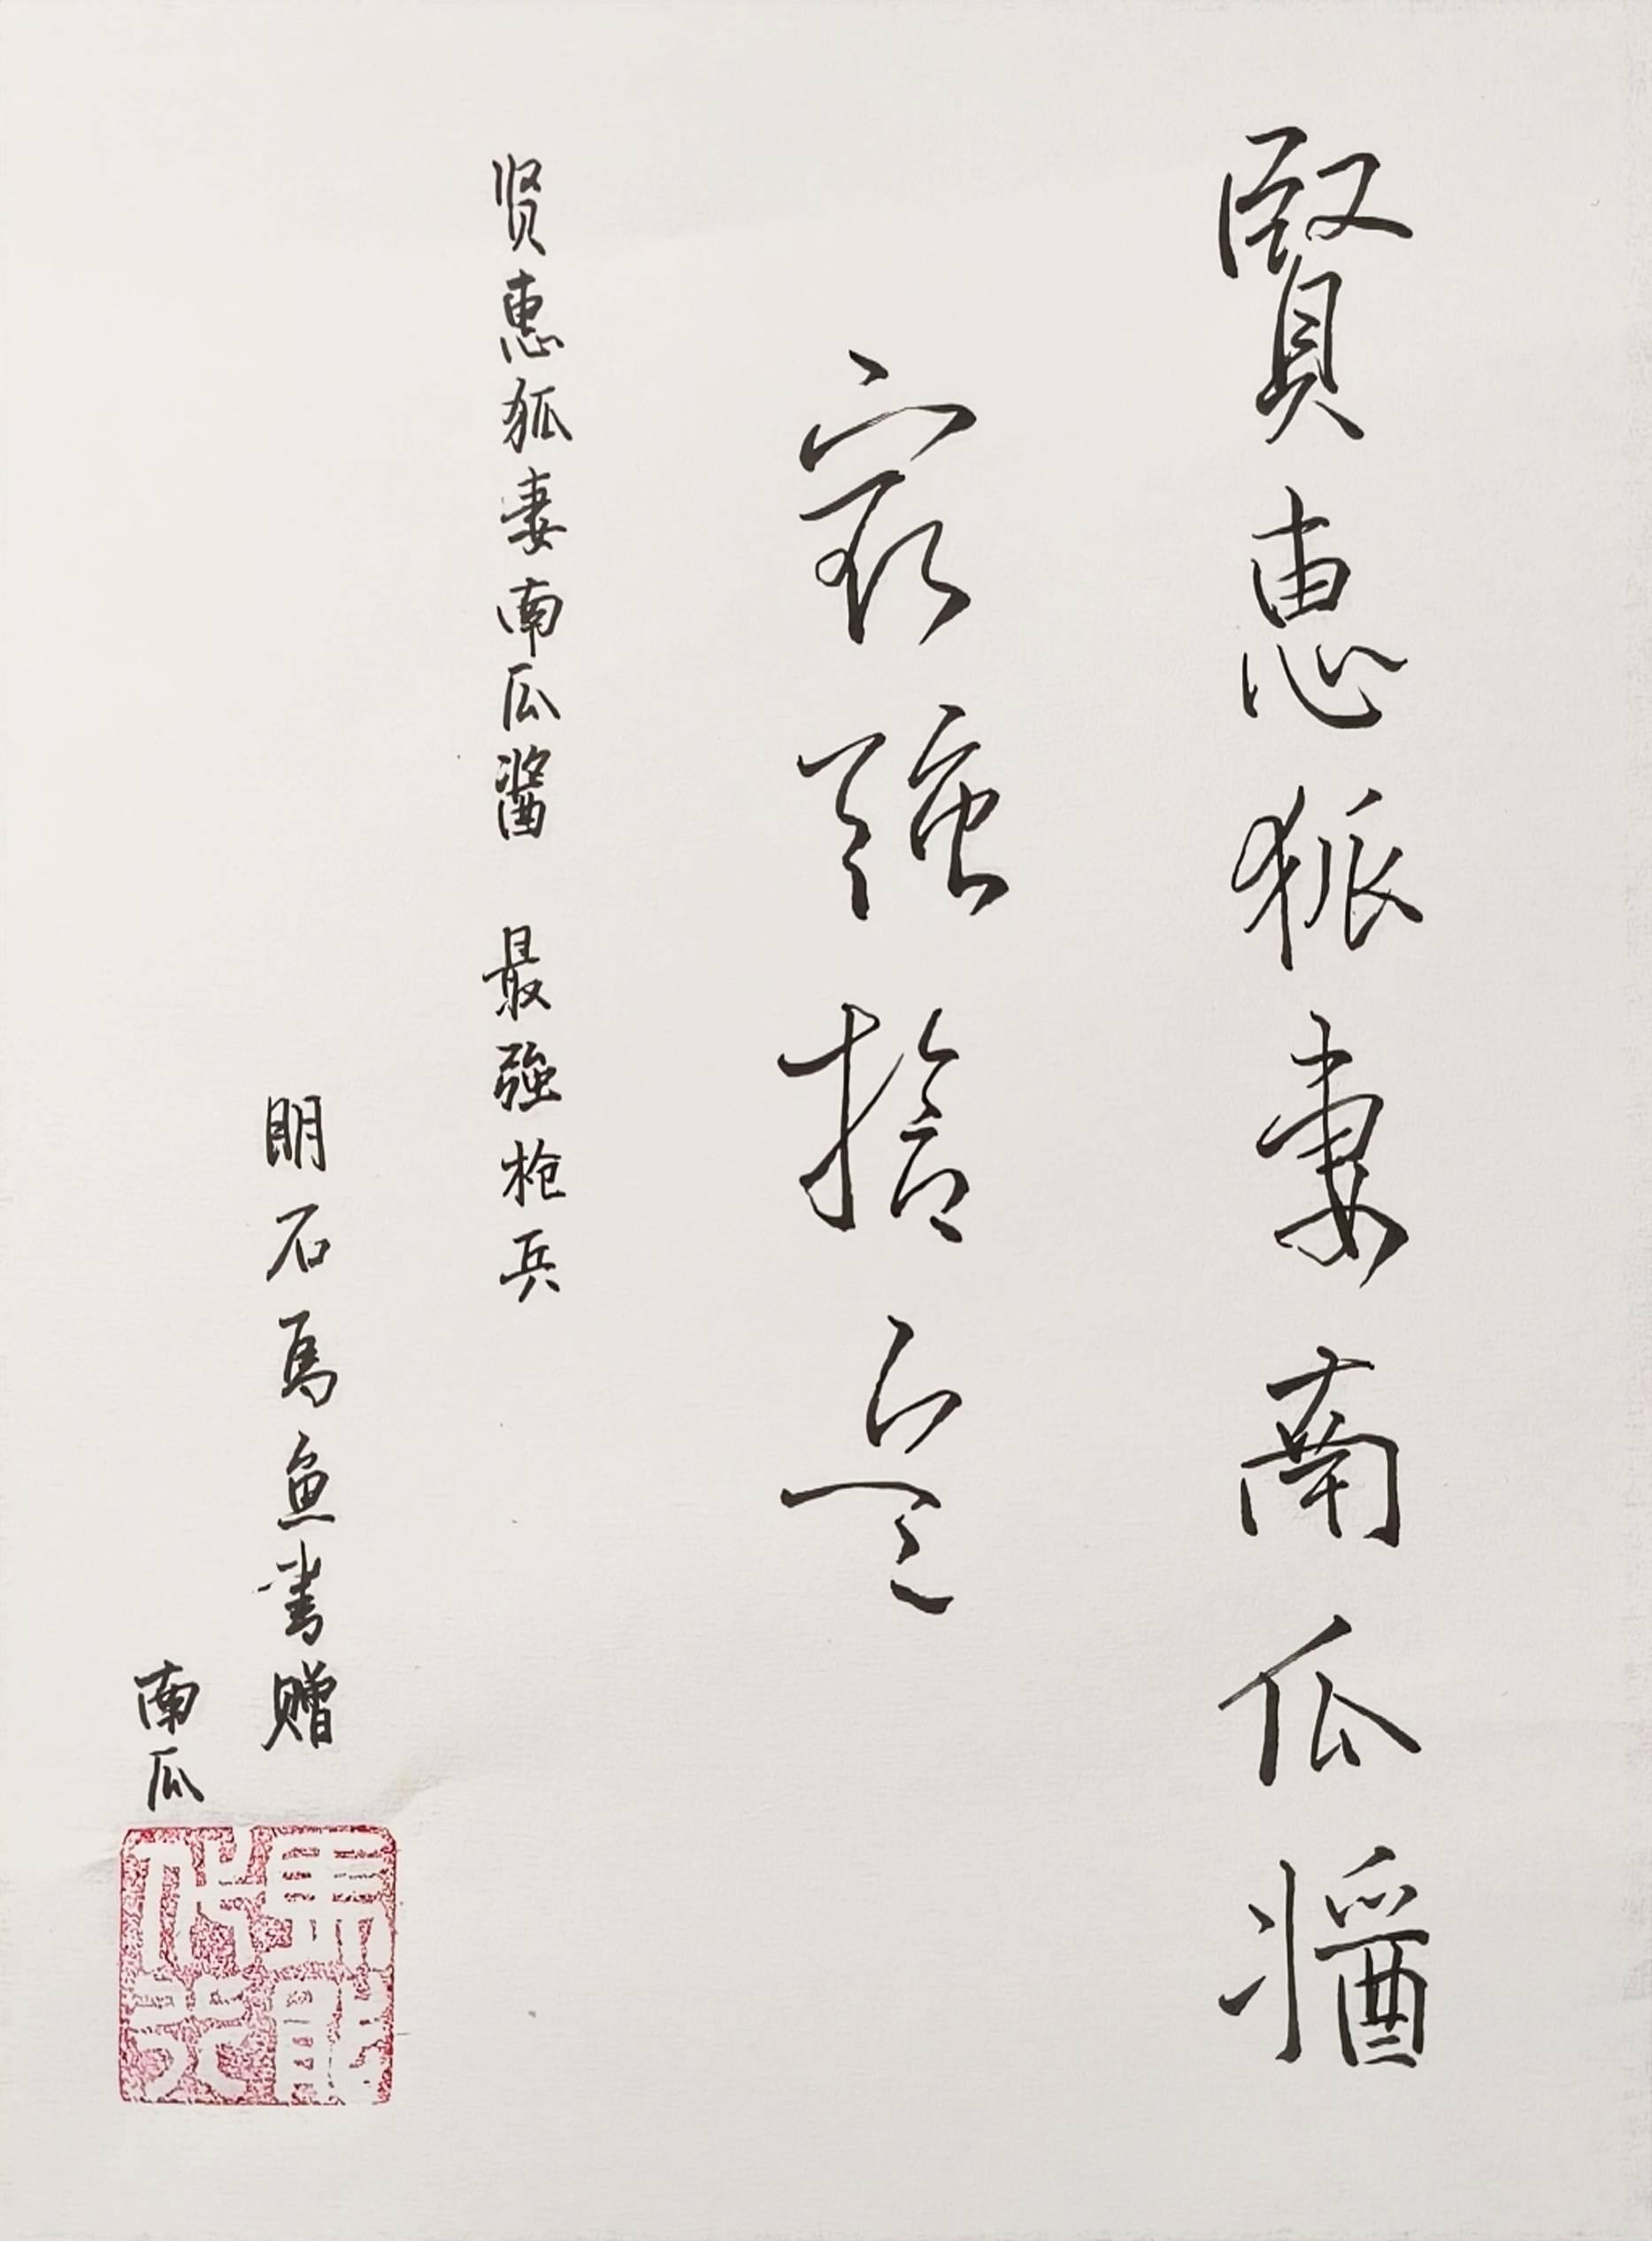 賢惠狐妻南瓜醬
最強槍兵
贤惠狐妻南瓜醬 最強枪兵
明石馬魚書赠
南瓜